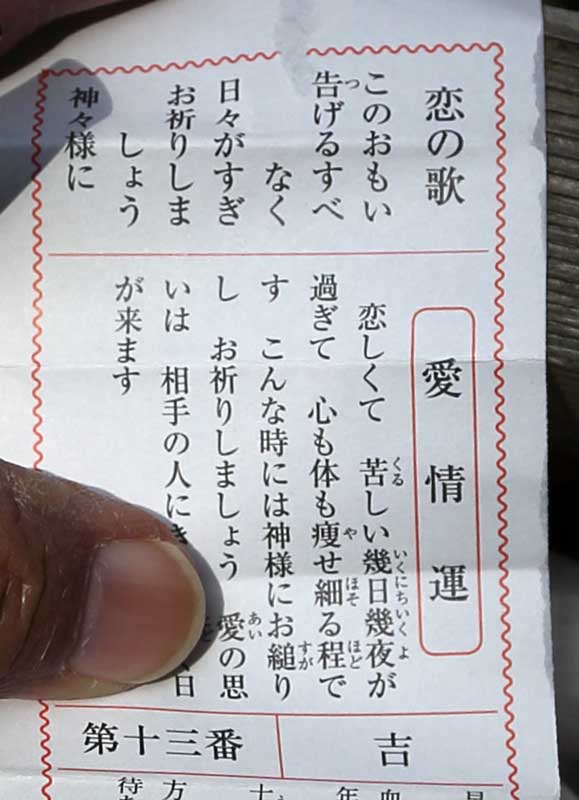 恋の歌
このおもい
告げるすべ
なく
日々がすぎ
お祈りしま
しょう
神々様に
愛情運
恋しくて 苦しい幾日幾夜が
過ぎて 心も体も痩せ細る程で
す こんな時には神様にお縋り
し お祈りしましょう 愛の思
いは 相手の人にき 日
が来ます
吉
第十三番